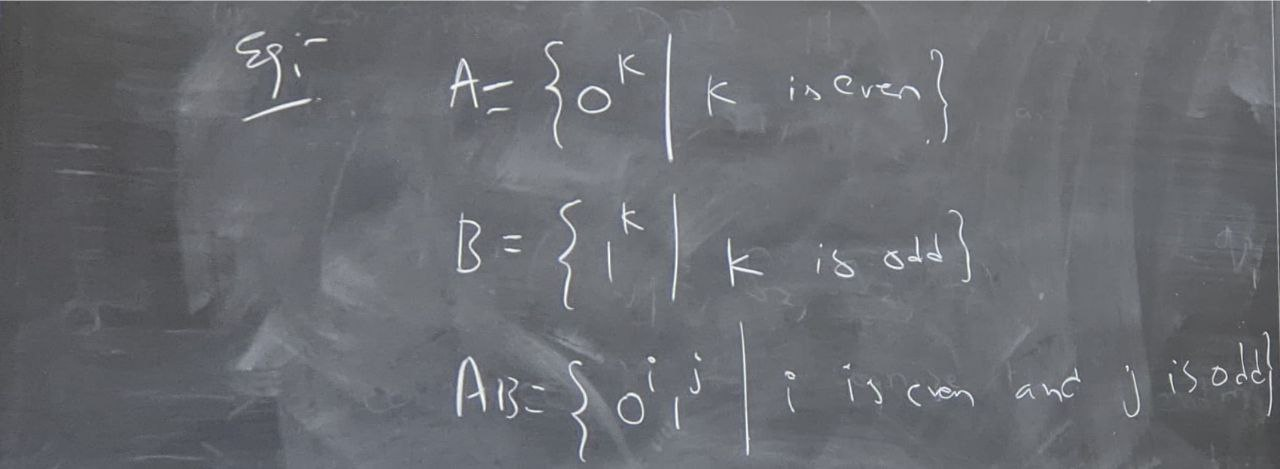 Eg:-
A = {0^k | k is even}
B = {1^k | k is odd}
AB = {0^i 1^j | i is even and j is odd}